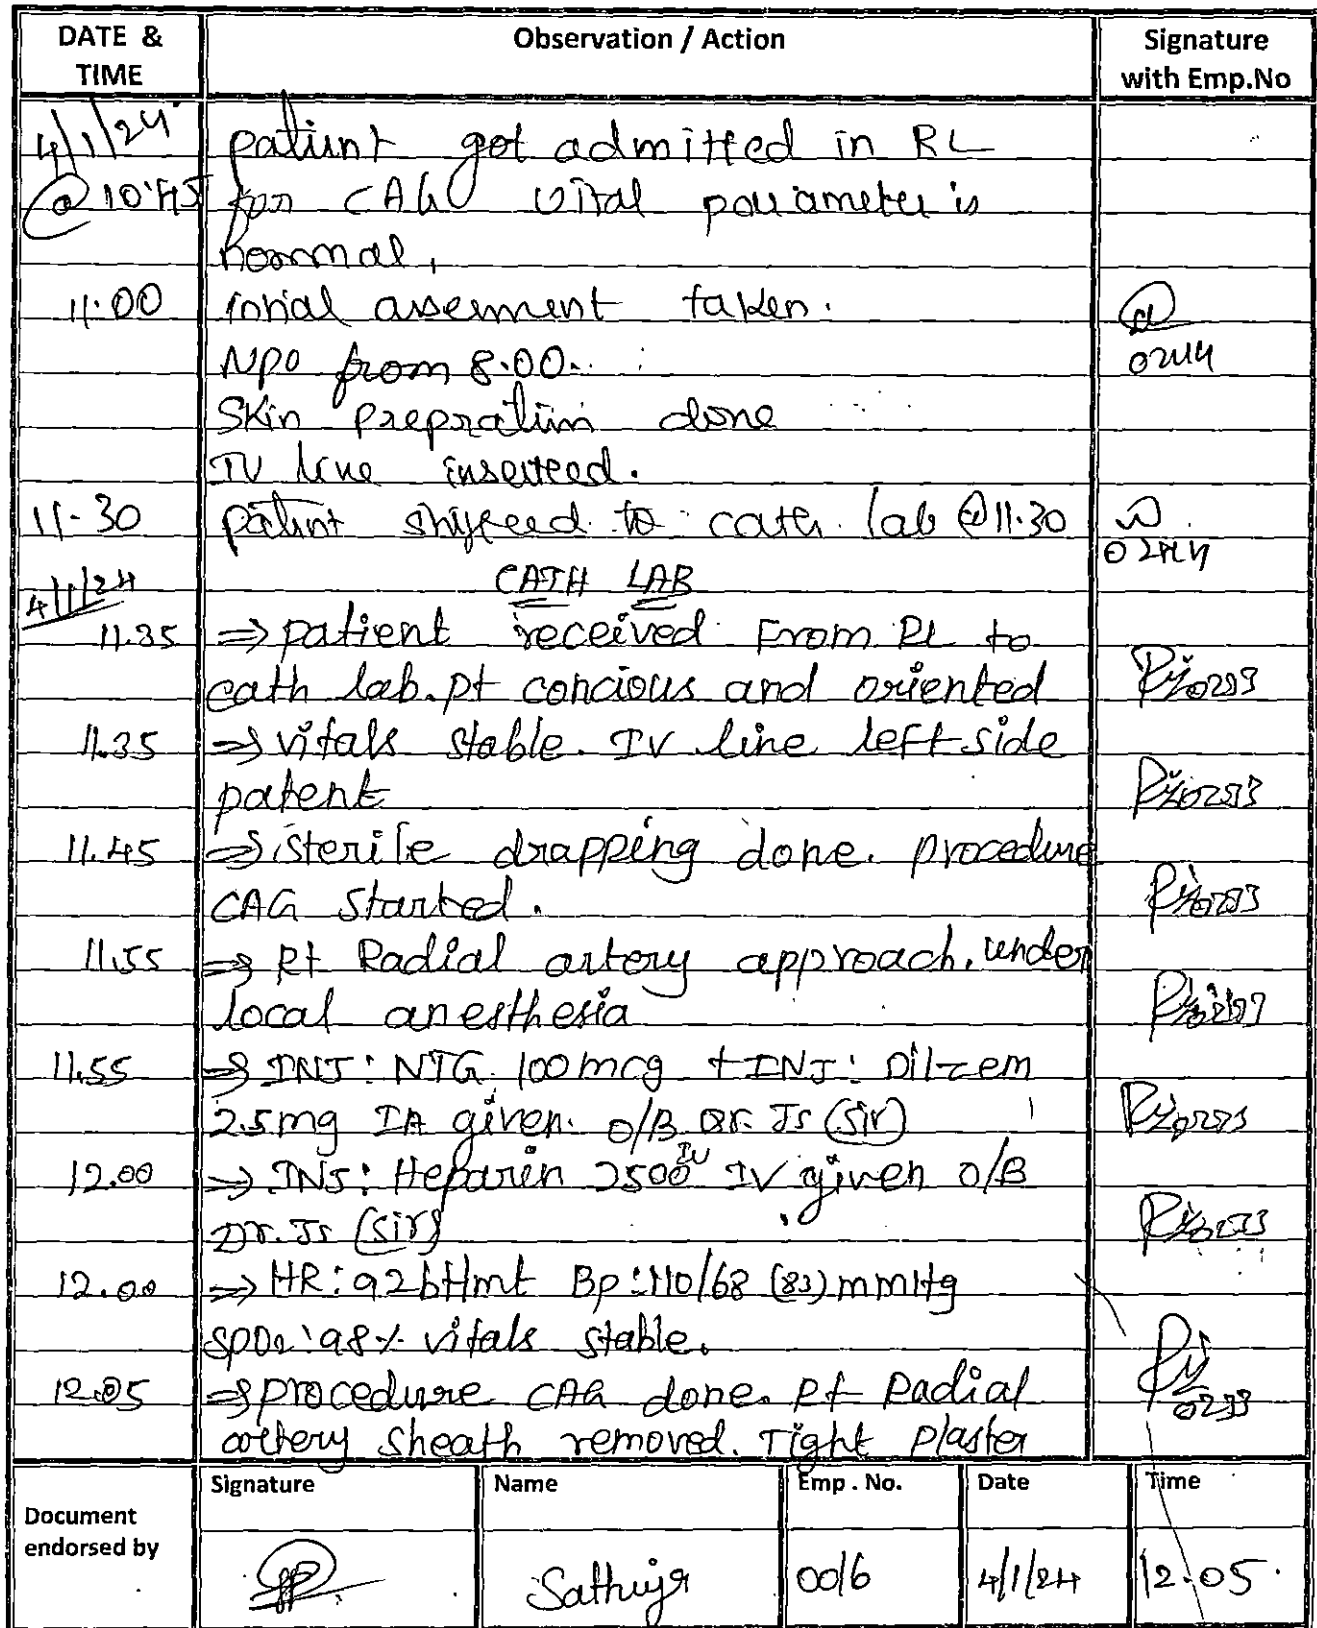 DATE & TIME Observation / Action Signature with Emp.No
4/1/24 patient got admitted in RL
@ 10:45 for CAG vital parameter is
normal,
11:00 initial assement taken.
NPO from 8.00.
Skin prepration done
IV line inserteed.
11-30 patint shifteed to cath lab @ 11.30
CATH LAB
4/1/24
11.35 ⇒ patient received From RL to
cath lab. pt concious and oriented
11.35 ⇒ vitals stable. IV line left side
patent
11.45 ⇒ Sterile drapping done. procedure
CAG Started.
11.55 ⇒ Rt Radial artery approach, under
local anesthesia
11.55 ⇒ INJ: NTG 100 mcg + INJ: Dilzem
2.5mg IA given. O/B Dr. Js (Sir)
12.00 ⇒ INJ: Heparin 2500 IU IV given O/B
Dr. Js (Sir)
12.00 ⇒ HR: 92 bt/mt Bp: 110/68 (83) mmHg
SPO2: 98% vitals stable.
12.05 ⇒ procedure CAG done. Rt Radial
artery sheath removed. Tight plaster
Document endorsed by Signature Name Emp. No. Date Time
0016 4/1/24 12.05